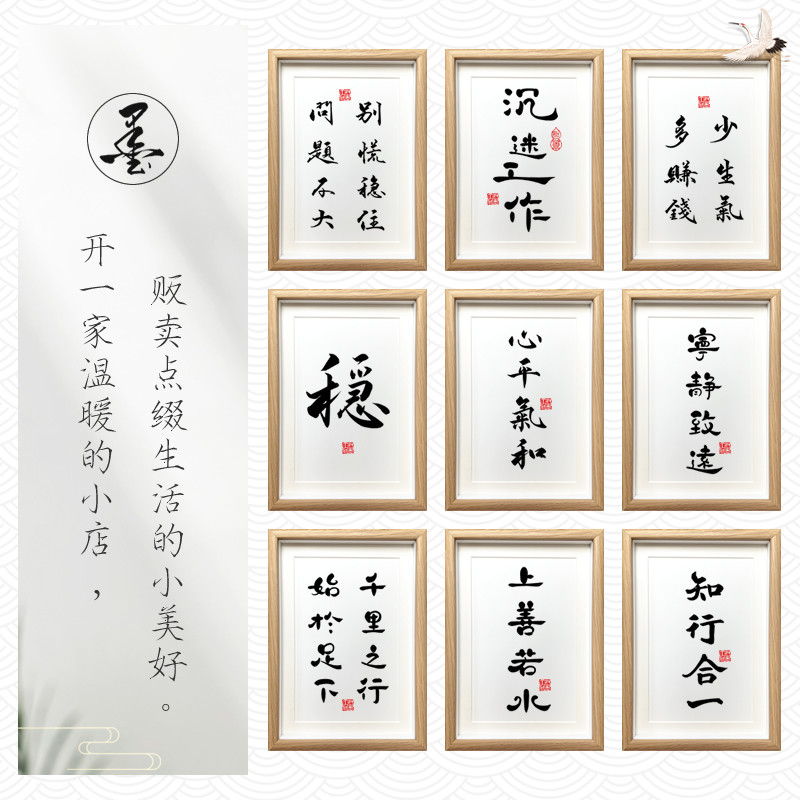 墨
开一家温暖的小店，
贩卖点缀生活的小美好。
别慌稳住
問題不大
沉迷工作
少生氣
多賺錢
穩
心平氣和
寧靜致遠
千里之行
始於足下
上善若水
知行合一